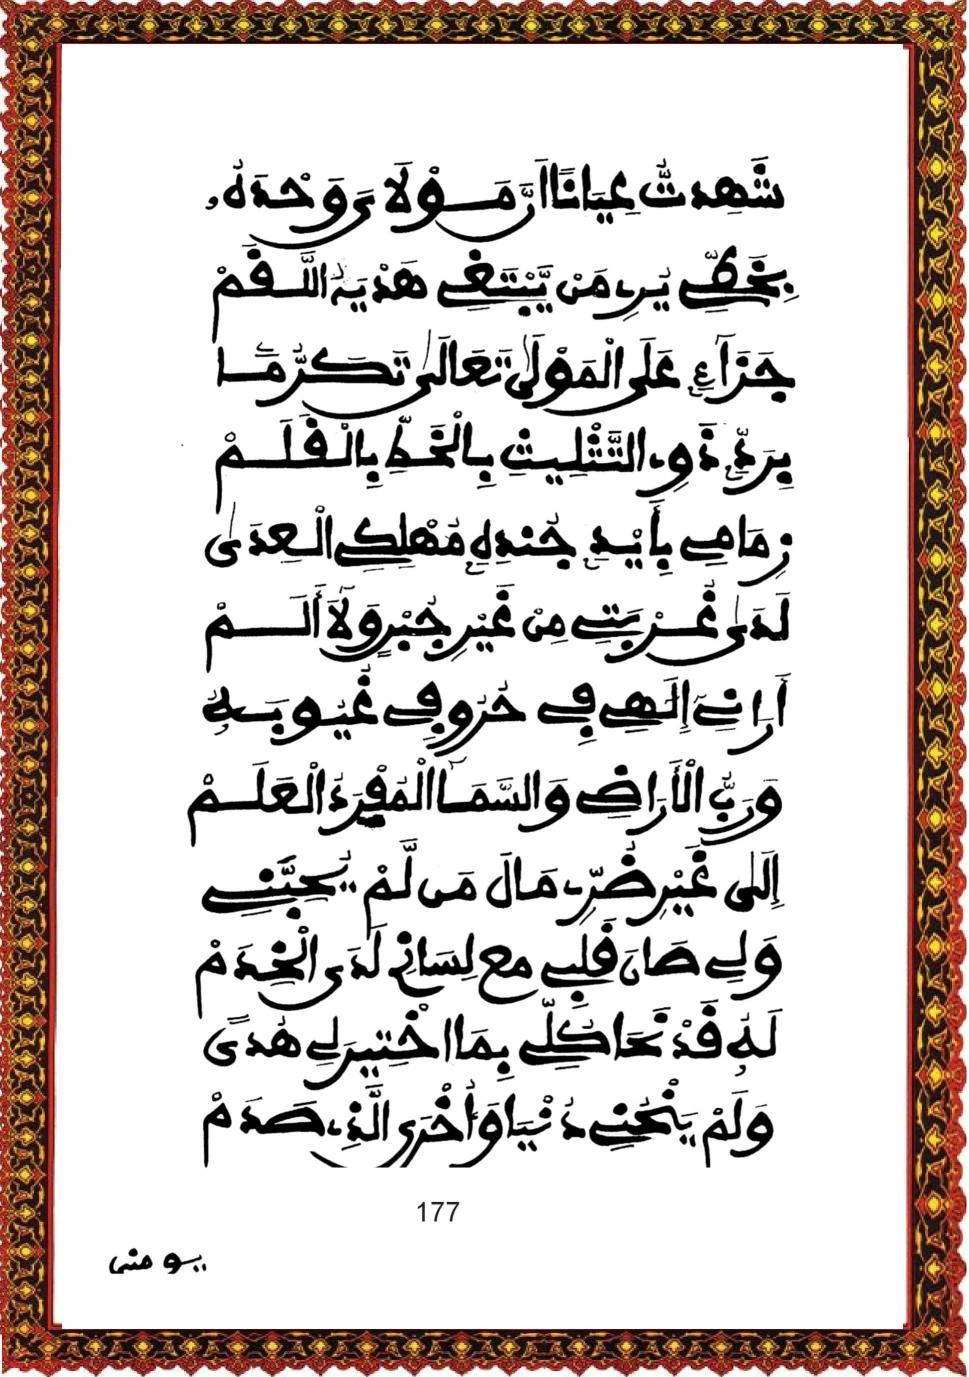 شَهِدتُّ عِيَانًا أَنَّ مَوْلَايَ وَحْدَهُ
بِخَطِّي يُرِي مَنْ يَبْتَغِي هَدْيَهُ اللَّقَمْ
جَزَاءِ عَلَى الْمَوْلَى تَعَالَى تَكَرُّمَا
بِرَدِّ ذَوِي التَّثْلِيثِ بِالْخَطِّ بِالْقَلَمْ
زِمَامِي بِأَيْدِي جُنْدِهِ مُهْلِكِ الْعِدَى
لَدَى غُرْبَتِي مِنْ غَيْرِ جَبْرٍ وَلَا أَلَمْ
أَرَانِي إِلَهِي فِي حُرُوفِي غُيُوبَهُ
وَرَبُّ الْأَرَاضِي وَالسَّمَا الْمُفْرَدُ الْعَلَمْ
إِلَى غَيْرِ ضُرِّي مَالَ مَن لَّمْ يُحِبَّنِي
وَلِي صَانَ قَلْبِي مَعْ لِسَانِي لَدَى الْخِدَمْ
لَهُ قَدْ نَحَا كُلِّي بِمَا اخْتِيرَ لِي هُدًى
وَلَمْ يَنْحُنِي دُنْيَا وَأُخْرَى الَّذِي صَدَمْ
177